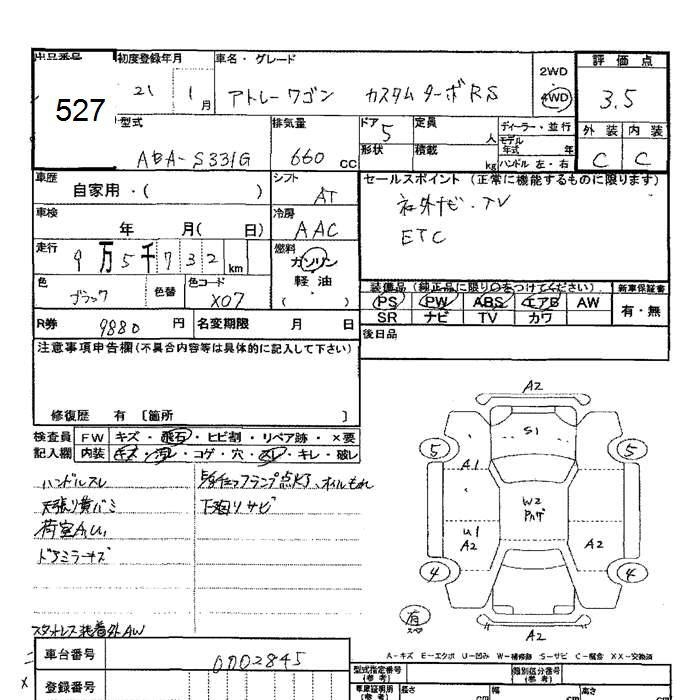 出品番号 初度登録年月 車名・グレード 評価点
527 21 1月 アトレーワゴン カスタムターボRS 2WD 4WD 3.5
型式 排気量 ドア 5 定員 人 ディーラー・並行 外装 内装
ABA-S331G 660 cc 形状 積載 kg モデル年式 年 ハンドル 左・右 C C
車歴 シフト セールスポイント(正常に機能するものに限ります)
自家用・( ) AT 社外ナビ・TV
車検 冷房 ETC
年 月( 日) AAC
走行 燃料
9万5千732km ガソリン
軽油
( )
色 色替 色コード 装備品(純正品に限り○をつけてください) 新車保証書
ブラック X07 PS PW ABS エアB AW 有・無
SR ナビ TV カワ
R券 9880 円 名変期限 月 日 後日品
注意事項申告欄(不具合内容等は具体的に記入して下さい)
修復歴 有 〔箇所 〕
検査員 FW キズ・飛石・ヒビ割・リペア跡・×要
記入欄 内装 キズ・汚レ・コゲ・穴・スレ・キレ・破レ
ハンドルスレ
天張り黄バミ 下廻りサビ
荷室A,U,
ドアミラーキズ
スタットレス装着外AW
A2
S1
5 5
A1
W2
U1
A2 A2
4 4
有
スペア
A2
A-キズ E-エクボ U-凹み W-補修跡 S-サビ C-腐合 XX-交換済
車台番号 0002845
型式指定番号(参考) 類別区分番号(参考)
登録番号 長さ cm 幅 cm 高さ cm